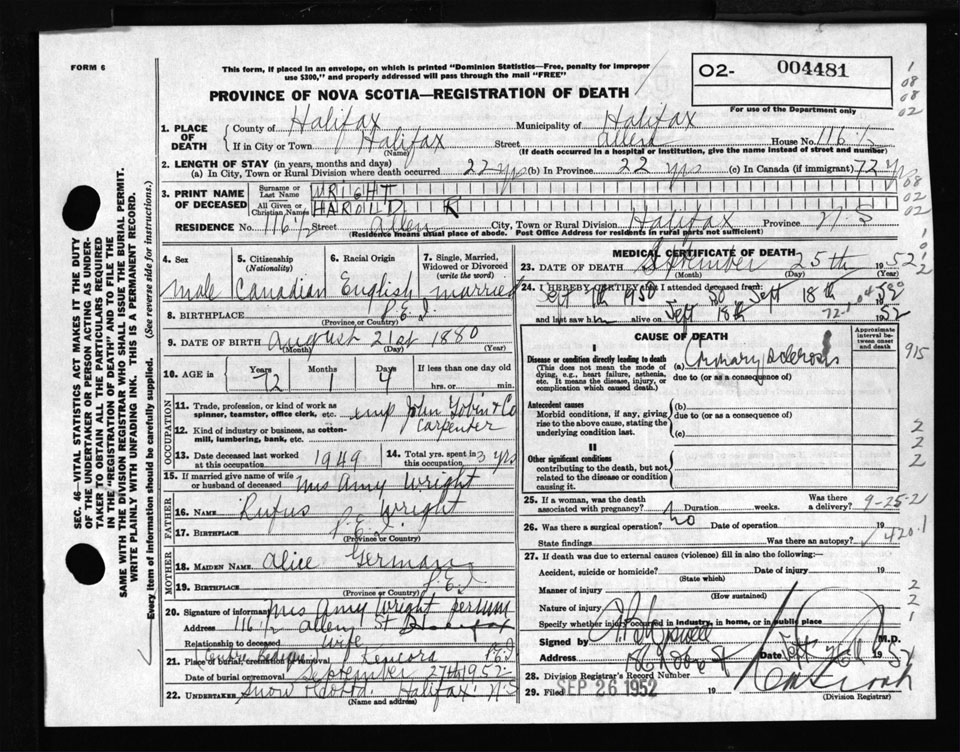 FORM 6
This form, if placed in an envelope, on which is printed "Dominion Statistics—Free, penalty for improper
use $300," and properly addressed will pass through the mail "FREE"
O2- 004481
For use of the Department only
PROVINCE OF NOVA SCOTIA—REGISTRATION OF DEATH
1. PLACE OF DEATH
County of Halifax Municipality of Halifax
If in City or Town Halifax Street Allen House No. 116 1/2
(Name) (If death occurred in a hospital or institution, give the name instead of street and number)
2. LENGTH OF STAY (in years, months and days)
(a) In City, Town or Rural Division where death occurred 22 yrs (b) In Province 22 yrs (c) In Canada (if immigrant) 72 yrs
3. PRINT NAME OF DECEASED
Surname or Last Name WRIGHT
All Given or Christian Names HAROLD R
RESIDENCE No. 116 1/2 Street Allen City, Town or Rural Division Halifax Province N S
(Residence means usual place of abode. Post Office Address for residents in rural parts not sufficient)
4. Sex
5. Citizenship (Nationality)
6. Racial Origin
7. Single, Married, Widowed or Divorced (write the word)
male Canadian English married
8. BIRTHPLACE P.E.I.
(Province or Country)
9. DATE OF BIRTH August 21st 1880
(Month) (Day) (Year)
10. AGE in Years Months Days If less than one day old
72 1 4 hrs. or min.
OCCUPATION
11. Trade, profession, or kind of work as spinner, teamster, office clerk, etc. emp John Tobin & Co
Carpenter
12. Kind of industry or business, as cotton-mill, lumbering, bank, etc.
13. Date deceased last worked at this occupation 1949
14. Total yrs. spent in this occupation 3 yrs
15. If married give name of wife or husband of deceased Mrs Amy Wright
FATHER
16. NAME Rufus Wright
17. BIRTHPLACE P.E.I.
(Province or Country)
MOTHER
18. MAIDEN NAME Alice German
19. BIRTHPLACE P.E.I
(Province or Country)
20. Signature of informant Mrs Amy Wright
Address 116 1/2 Allen St Halifax
Relationship to deceased wife
21. Place of burial, cremation or removal P.E.I
Date of burial or removal September 27th 1952
22. UNDERTAKER Snow & Co Ltd. Halifax N.S
(Name and address)
MEDICAL CERTIFICATE OF DEATH
23. DATE OF DEATH September 25th 1952
(Month) (Day) (Year)
24. I HEREBY CERTIFY that I attended deceased from:
Sept 7th 1950 to Sept 18th 1952
and last saw him alive on Sept 18th 1952
CAUSE OF DEATH
Approximate interval between onset and death
I
Disease or condition directly leading to death
(This does not mean the mode of dying, e.g., heart failure, asthenia, etc. It means the disease, injury, or complication which caused death.)
(a) Coronary Sclerosis
due to (or as a consequence of)
915
Antecedent causes
Morbid conditions, if any, giving rise to the above cause, stating the underlying condition last.
(b)
due to (or as a consequence of)
(c)
II
Other significant conditions
contributing to the death, but not related to the disease or condition causing it.
25. If a woman, was the death associated with pregnancy? Duration weeks. Was there a delivery? 9-25-2
26. Was there a surgical operation? no Date of operation 19
State findings Was there an autopsy? 420.1
27. If death was due to external causes (violence) fill in also the following:—
Accident, suicide or homicide? Date of injury 19
(State which)
Manner of injury
(How sustained)
Nature of injury
Specify whether injury occurred in industry, in home, or in public place
Signed by M.D.
Address Date Sept 26 1952
28. Division Registrar's Record Number
29. Filed SEP 26 1952 19
(Division Registrar)
SEC. 46—VITAL STATISTICS ACT MAKES IT THE DUTY
OF THE UNDERTAKER OR PERSON ACTING AS UNDER-
TAKER TO OBTAIN ALL THE PARTICULARS REQUIRED
IN THE "REGISTRATION OF DEATH" AND TO FILE THE
SAME WITH THE DIVISION REGISTRAR WHO SHALL ISSUE THE BURIAL PERMIT.
WRITE PLAINLY WITH UNFADING INK. THIS IS A PERMANENT RECORD.
Every item of information should be carefully supplied. (See reverse side for instructions.)